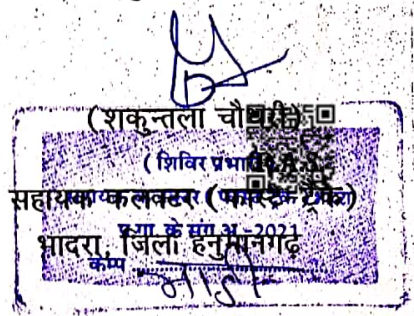 (शकुन्तला चौधरी)
(शिविर प्रभारी)
सहायक कलक्टर (फास्ट ट्रैक)
प्र.गा. के संग अ.-2021
भादरा, जिला हनुमानगढ़
कैम्प